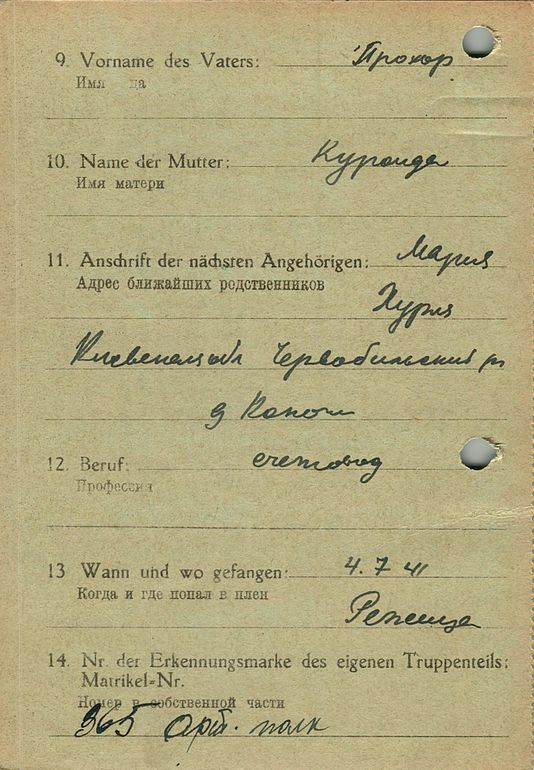 9. Vorname des Vaters: Прохор
Имя ца
10. Name der Mutter: Куранда
Имя матери
11. Anschrift der nächsten Angehörigen: Мария
Адрес ближайших родственников
Хурля
обл
д Копочи
12. Beruf: счетовод
Профессия
13 Wann und wo gefangen: 4. 7 41
Когда и где попал в плен
Режица
14. Nr. der Erkennungsmarke des eigenen Truppenteils:
Matrikel-Nr.
Номер в собственной части
365 арт. полк